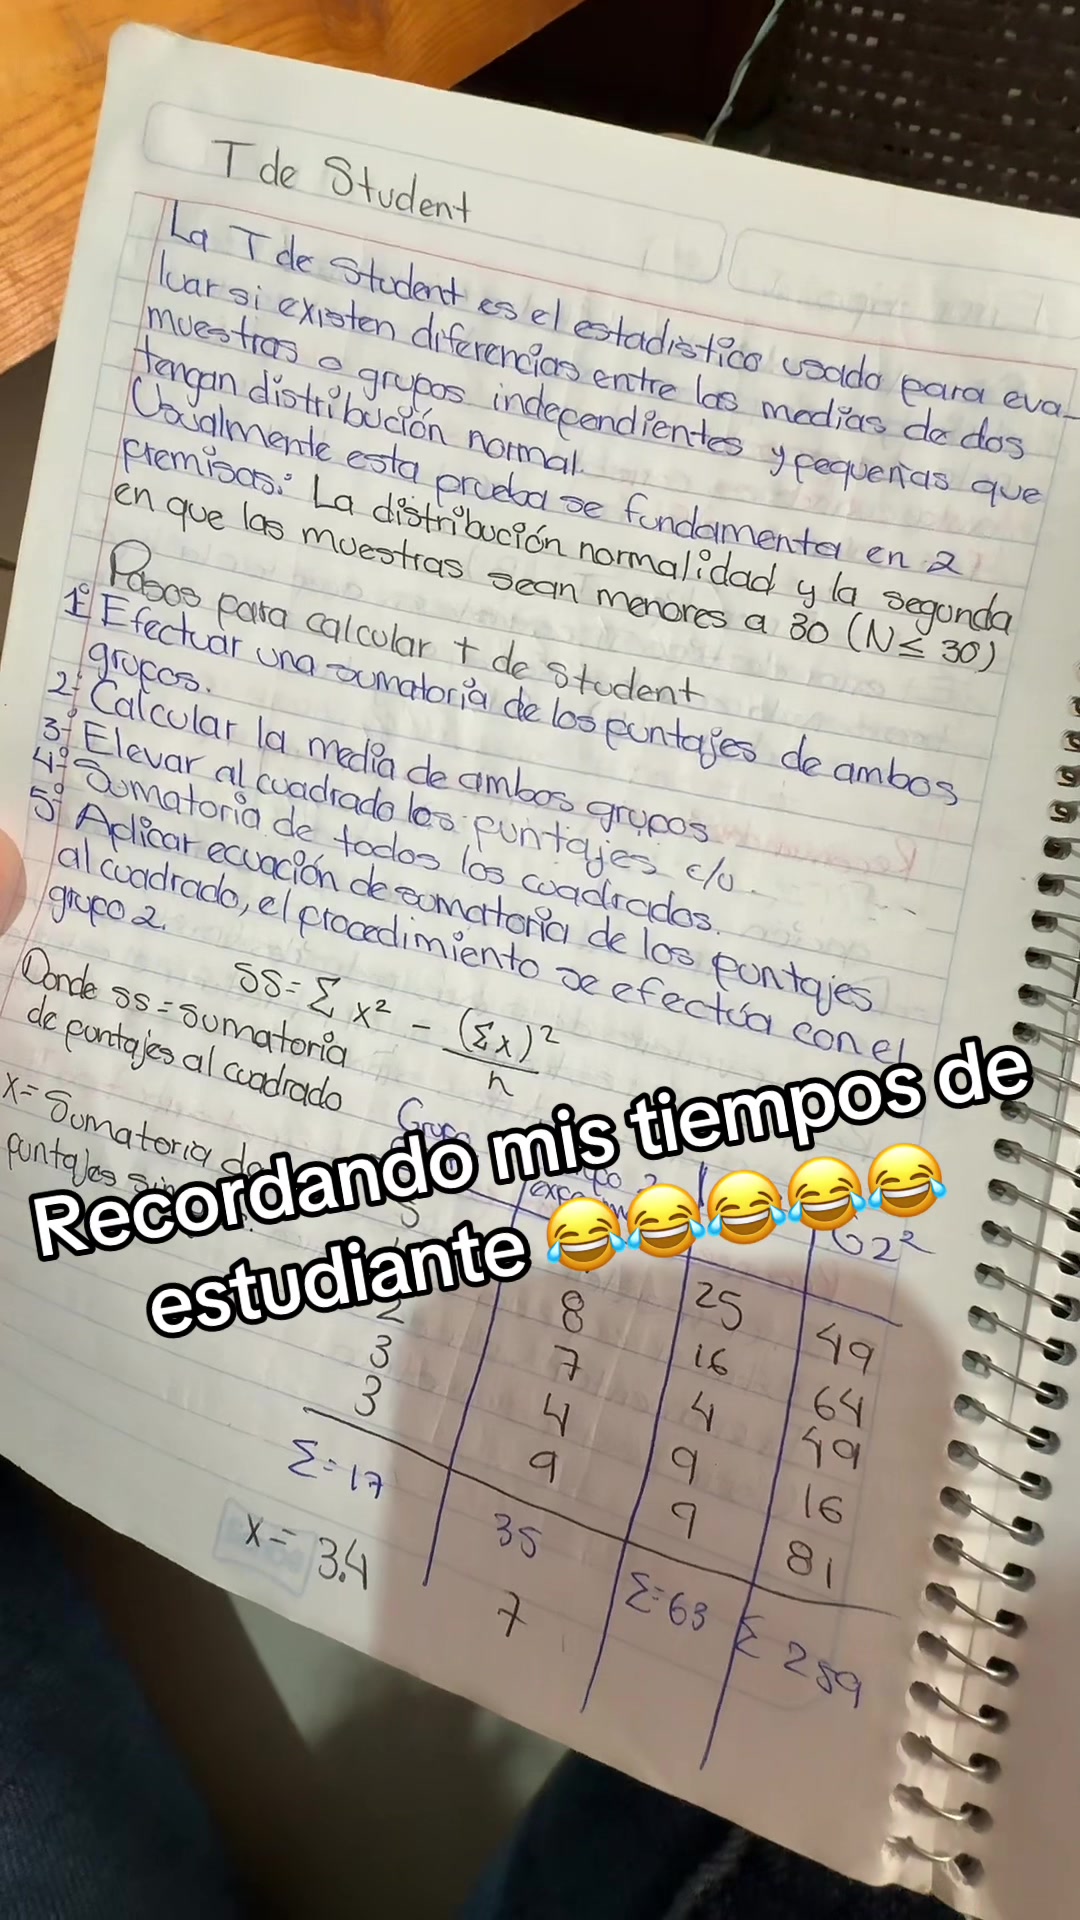 T de Student
La T de Student es el estadístico usado para eva-
luar si existen diferencias entre las medias de dos
muestras o grupos independientes y pequeñas que
tengan distribución normal.
Usualmente esta prueba se fundamenta en 2
premisas: La distribución normalidad y la segunda
en que las muestras sean menores a 30 (N≤ 30)
Pasos para calcular t de Student
1º Efectuar una sumatoria de los puntajes de ambos
grupos.
2º Calcular la media de ambos grupos
3º Elevar al cuadrado los puntajes c/u.
4º Sumatoria de todos los cuadrados.
5º Aplicar ecuación de sumatoria de los puntajes
al cuadrado, el procedimiento se efectúa con el
grupo 2.
SS = Σ x² - (Σx)²
n
Donde ss = sumatoria
de puntajes al cuadrado
x = Sumatoria de
puntajes
Recordando mis tiempos de
estudiante 😂😂😂😂😂
5
G2²
2 8 25 49
3 7 16 64
3 4 4 49
9 9 16
9 81
Σ=17 35 Σ=63 Σ 259
x= 3.4 7